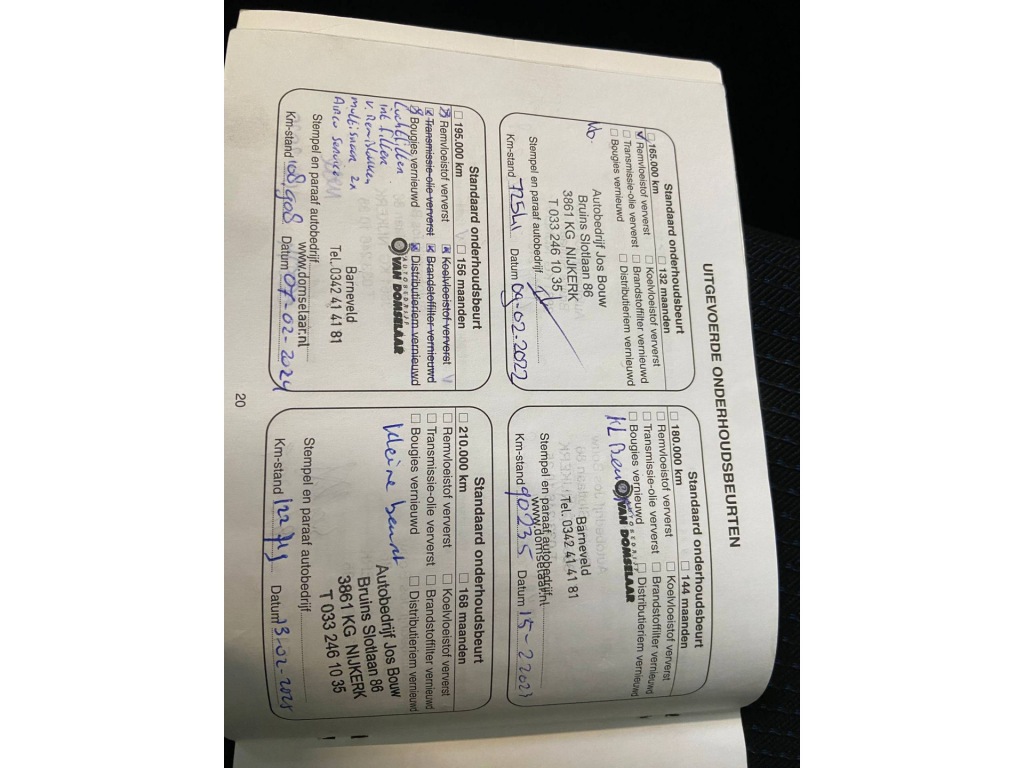 UITGEVOERDE ONDERHOUDSBEURTEN
Standaard onderhoudsbeurt
☐ 165.000 km ☐ 132 maanden
☑ Remvloeistof ververst ☐ Koelvloeistof ververst
☐ Transmissie-olie ververst ☐ Brandstoffilter vernieuwd
☐ Bougies vernieuwd ☐ Distributieriem vernieuwd
Autobedrijf Jos Bouw
Bruins Slotlaan 86
3861 KG NIJKERK
T 033 246 10 35
Stempel en paraaf autobedrijf
Km-stand 72541 Datum 09-02-2022
Standaard onderhoudsbeurt
☐ 180.000 km ☐ 144 maanden
☐ Remvloeistof ververst ☐ Koelvloeistof ververst
☐ Transmissie-olie ververst ☐ Brandstoffilter vernieuwd
☐ Bougies vernieuwd ☐ Distributieriem vernieuwd
KL Beurt
AUTOBEDRIJF
VAN DOMSELAAR
Barneveld
Tel. 0342 41 41 81
www.domselaar.nl
Stempel en paraaf autobedrijf
Km-stand 90235 Datum 15-2 2023
Standaard onderhoudsbeurt
☐ 195.000 km ☐ 156 maanden
☒ Remvloeistof ververst ☒ Koelvloeistof ververst
☒ Transmissie-olie ververst ☒ Brandstoffilter vernieuwd
☒ Bougies vernieuwd ☒ Distributieriem vernieuwd
Luchtfilter
int filter
multisnaar 2x
Airco service
AUTOBEDRIJF
VAN DOMSELAAR
Barneveld
Tel. 0342 41 41 81
www.domselaar.nl
Stempel en paraaf autobedrijf
Km-stand 108.908 Datum 07-02-2024
Standaard onderhoudsbeurt
☐ 210.000 km ☐ 168 maanden
☐ Remvloeistof ververst ☐ Koelvloeistof ververst
☐ Transmissie-olie ververst ☐ Brandstoffilter vernieuwd
☐ Bougies vernieuwd ☐ Distributieriem vernieuwd
kleine beurt
Autobedrijf Jos Bouw
Bruins Slotlaan 86
3861 KG NIJKERK
T 033 246 10 35
Stempel en paraaf autobedrijf
Km-stand Datum 13-02-2025
20